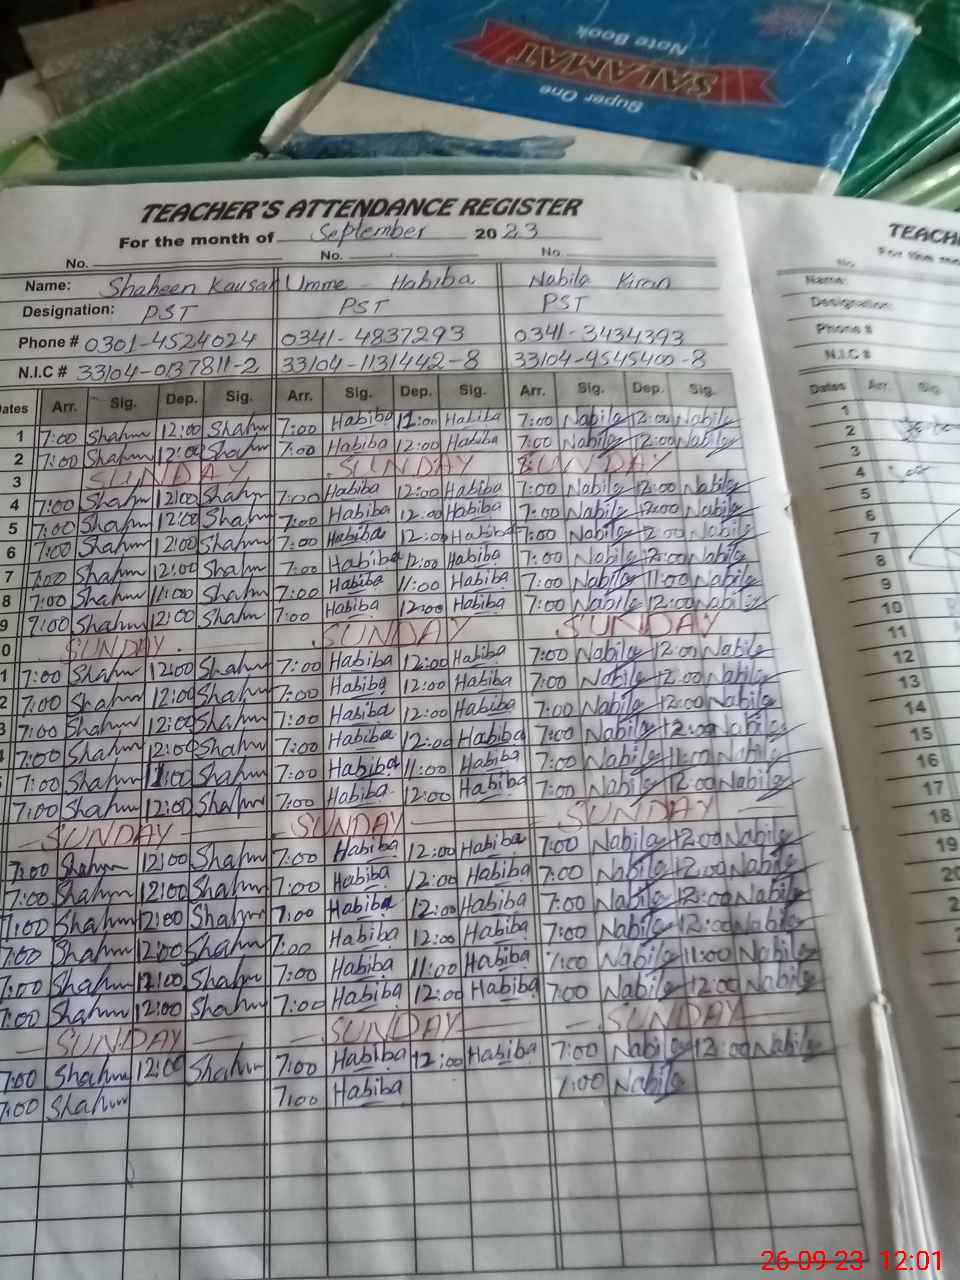 Super One
SALAMAT
Note Book
TEACHER'S ATTENDANCE REGISTER
For the month of September 2023
No. No. No.
Name: Shaheen Kausar Umme - Habiba Nabila Kiran
Designation: PST PST PST
Phone # 0301-4524024 0341-4837293 0341-3434393
N.I.C # 33104-0137811-2 33104-1131442-8 33104-9545400-8
Dates Arr. Sig. Dep. Sig. Arr. Sig. Dep. Sig. Arr. Sig. Dep. Sig.
1 7:00 Shahm 12:00 Shahm 7:00 Habiba 12:00 Habiba 7:00 Nabila 12:00 Nabila
2 7:00 Shahm 12:00 Shahm 7:00 Habiba 12:00 Habiba 7:00 Nabila 12:00 Nabila
3 SUNDAY SUNDAY SUNDAY
4 7:00 Shahm 12:00 Shahm 7:00 Habiba 12:00 Habiba 7:00 Nabila 12:00 Nabila
5 7:00 Shahm 12:00 Shahm 7:00 Habiba 12:00 Habiba 7:00 Nabila 12:00 Nabila
6 7:00 Shahm 12:00 Shahm 7:00 Habiba 12:00 Habiba 7:00 Nabila 12:00 Nabila
7 7:00 Shahm 12:00 Shahm 7:00 Habiba 12:00 Habiba 7:00 Nabila 12:00 Nabila
8 7:00 Shahm 11:00 Shahm 7:00 Habiba 11:00 Habiba 7:00 Nabila 11:00 Nabila
9 7:00 Shahm 12:00 Shahm 7:00 Habiba 12:00 Habiba 7:00 Nabila 12:00 Nabila
0 SUNDAY SUNDAY SUNDAY
1 7:00 Shahm 12:00 Shahm 7:00 Habiba 12:00 Habiba 7:00 Nabila 12:00 Nabila
2 7:00 Shahm 12:00 Shahm 7:00 Habiba 12:00 Habiba 7:00 Nabila 12:00 Nabila
3 7:00 Shahm 12:00 Shahm 7:00 Habiba 12:00 Habiba 7:00 Nabila 12:00 Nabila
7:00 Shahm 12:00 Shahm 7:00 Habiba 12:00 Habiba 7:00 Nabila 12:00 Nabila
7:00 Shahm 11:00 Shahm 7:00 Habiba 11:00 Habiba 7:00 Nabila 11:00 Nabila
7:00 Shahm 12:00 Shahm 7:00 Habiba 12:00 Habiba 7:00 Nabila 12:00 Nabila
SUNDAY SUNDAY SUNDAY
7:00 Shahm 12:00 Shahm 7:00 Habiba 12:00 Habiba 7:00 Nabila 12:00 Nabila
7:00 Shahm 12:00 Shahm 7:00 Habiba 12:00 Habiba 7:00 Nabila 12:00 Nabila
7:00 Shahm 12:00 Shahm 7:00 Habiba 12:00 Habiba 7:00 Nabila 12:00 Nabila
7:00 Shahm 12:00 Shahm 7:00 Habiba 12:00 Habiba 7:00 Nabila 12:00 Nabila
7:00 Shahm 12:00 Shahm 7:00 Habiba 11:00 Habiba 7:00 Nabila 11:00 Nabila
7:00 Shahm 12:00 Shahm 7:00 Habiba 12:00 Habiba 7:00 Nabila 12:00 Nabila
SUNDAY SUNDAY SUNDAY
7:00 Shahm 12:00 Shahm 7:00 Habiba 12:00 Habiba 7:00 Nabila 12:00 Nabila
7:00 Shahm 7:00 Habiba 7:00 Nabila
TEACH
For the m
No.
Name:
Designation:
Phone #
N.I.C #
Dates Arr. Sig.
1
2
3
4
5
6
7
8
9
10
11
12
13
14
15
16
17
18
19
20
26-09-23 12:01